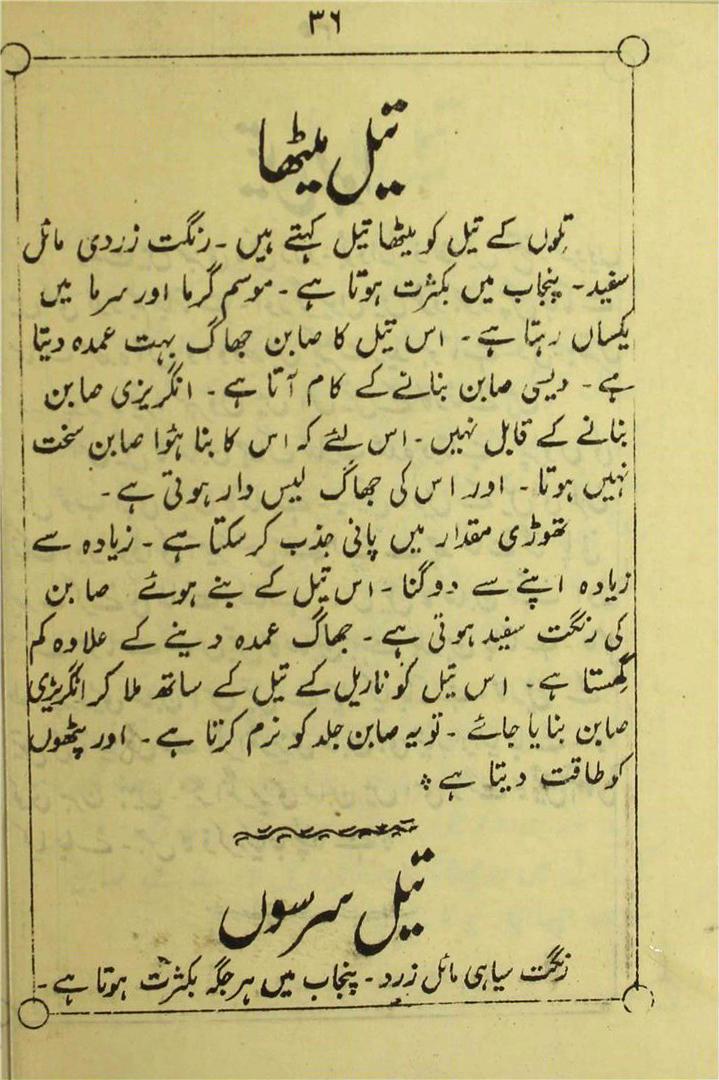 ۳۶
تیل میٹھا
تِلوں کے تیل کو میٹھا تیل کہتے ہیں ۔ رنگت زردی مائل
سفید ۔ پنجاب میں بکثرت ہوتا ہے ۔ موسم گرما اور سرما میں
یکساں رہتا ہے ۔ اس تیل کا صابن جھاگ بہت عمدہ دیتا
ہے ۔ دیسی صابن بنانے کے کام آتا ہے ۔ انگریزی صابن
بنانے کے قابل نہیں ۔ اس لئے کہ اس کا بنا ہؤا صابن سخت
نہیں ہوتا ۔ اور اس کی جھاگ لیس دار ہوتی ہے ۔
تھوڑی مقدار میں پانی جذب کر سکتا ہے ۔ زیادہ سے
زیادہ اپنے سے دوگنا ۔ اس تیل کے بنے ہوئے صابن
کی رنگت سفید ہوتی ہے ۔ جھاگ عمدہ دینے کے علاوہ کم
گھِستا ہے ۔ اس تیل کو ناریل کے تیل کے ساتھ ملا کر انگریزی
صابن بنایا جائے ۔ تو یہ صابن جلد کو نرم کرتا ہے ۔ اور پٹھوں
کو طاقت دیتا ہے ؞
تیل سرسوں
رنگت سیاہی مائل زرد ۔ پنجاب میں ہر جگہ بکثرت ہوتا ہے ۔